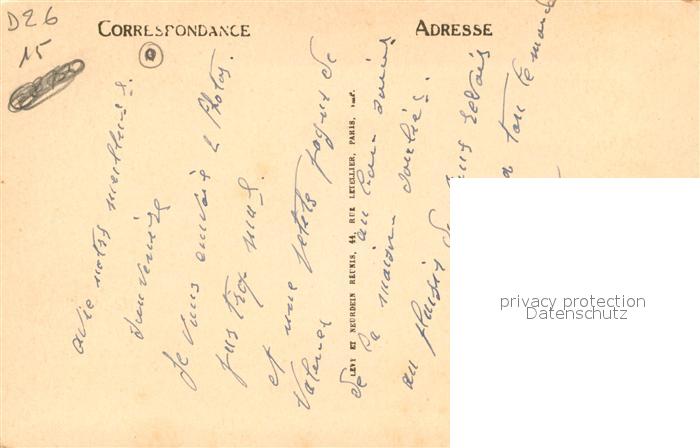 D26
15
CORRESPONDANCE
ADRESSE
avec notre meilleur
souvenir
Je vous envoie 2 Photos
pas trop mal.
et une petite
Valence
de la maison
au plaisir de vous
a tout le monde
LEVY ET NEURDEIN RÉUNIS, 44, RUE LETELLIER, PARIS, IMP.
privacy protection
Datenschutz